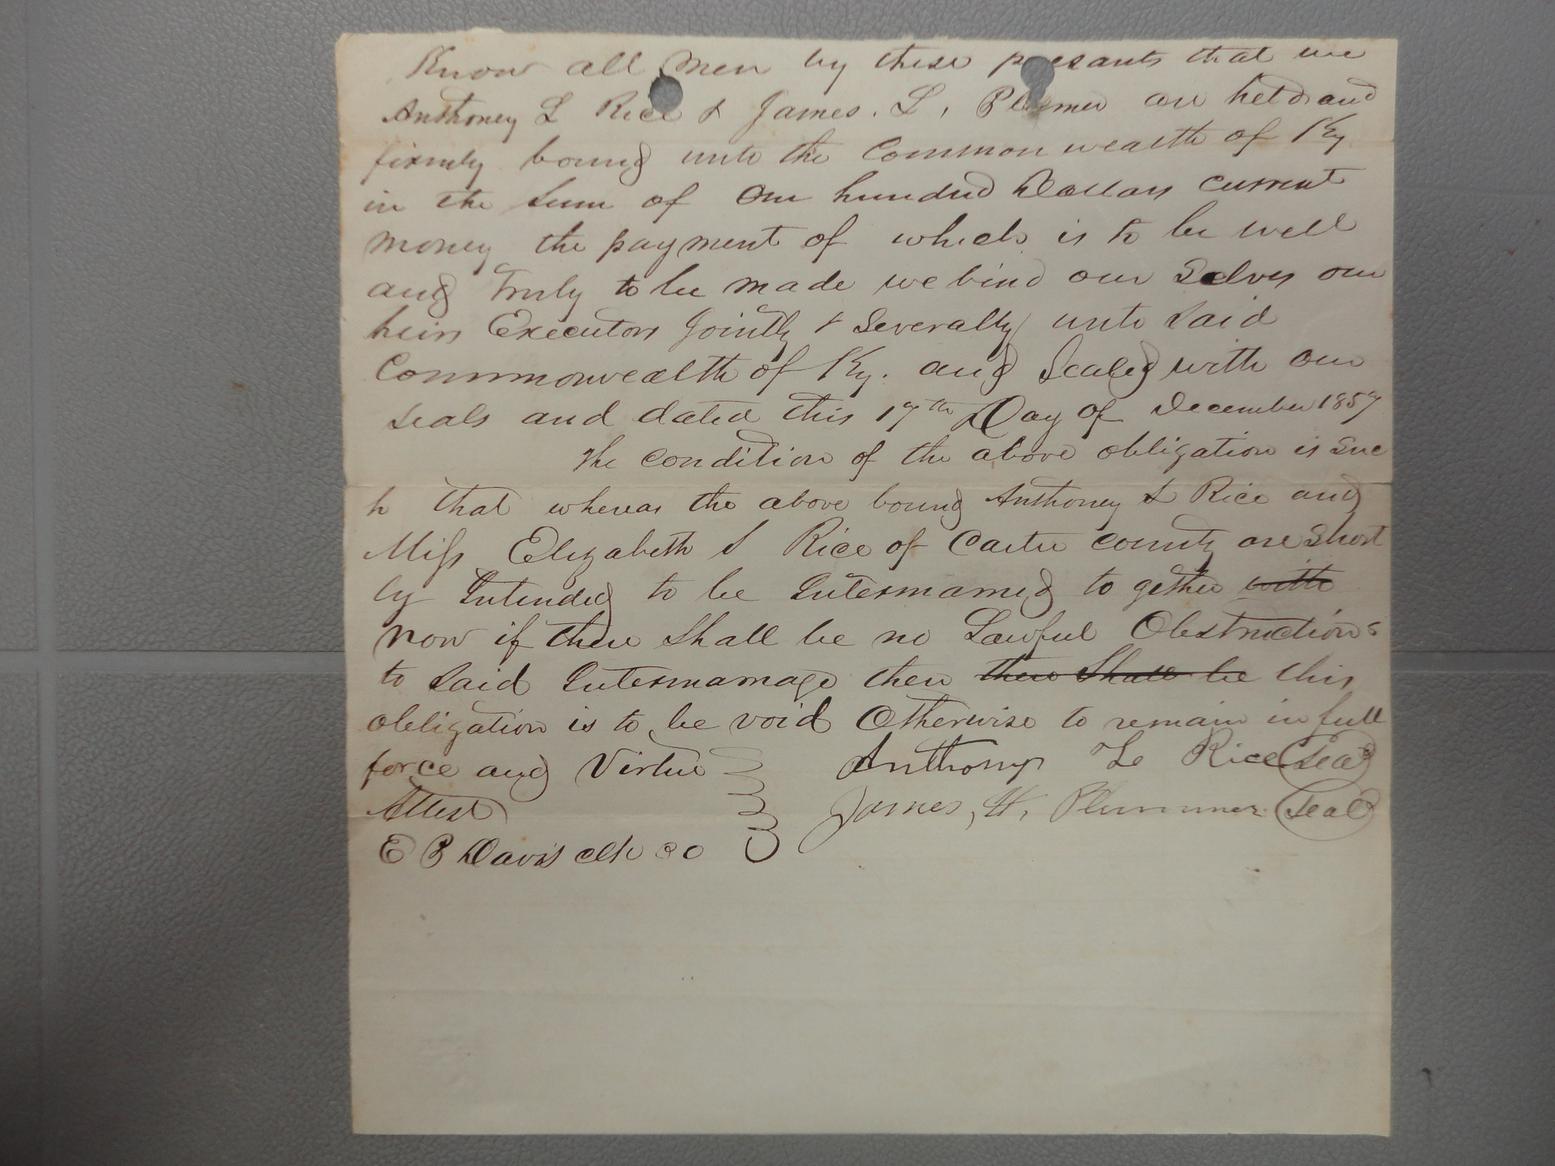 Know all Men by these presants that we
Anthoney L Rice & James. L, Plummer are held and
firmly boung unto the Common wealth of Ky
in the Sum of One hundred Dollars current
money the payment of which is to be well
and Truly to be made we bind our Selves our
heirs Executors Jointly & Severally unto Said
Commonwealth of Ky. and Sealed with our
Seals and dated this 17th Day of December 1857
The condition of the above obligation is Suc
h that whereas the above boung Anthoney L Rice and
Miss Elizabeth S Rice of Carter county are Short
ly Intended to be Intermarried to gether with
now if there Shall be no Lawful Obstructions
to Said Intermarriage then there Shall be this
obligation is to be void Otherwise to remain in full
force and Virtue Anthony L Rice Seal
Attest James, H, Plummer Seal
E B Davis clk co